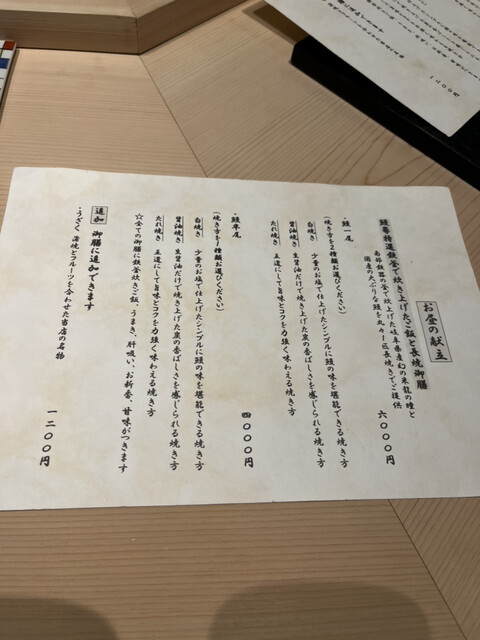 お昼の献立
鰻専特選鉄釜で炊き上げたご飯と長焼御膳
南部鉄器の釜で炊上げた岐阜県産幻の米龍の瞳と
国産の大ぶりな鰻を丸々1匹長焼きでご提供
六〇〇〇円
・鰻一尾
(焼き方を2種類お選びください)
白焼き 少量のお塩で仕上げたシンプルに鰻の味を堪能できる焼き方
醤油焼き 生醤油だけで焼き上げた炭の香ばしさを感じられる焼き方
たれ焼き 王道にして旨味とコクを力強く味わえる焼き方
・鰻半尾
四〇〇〇円
(焼き方を1種類お選びください)
白焼き 少量のお塩で仕上げたシンプルに鰻の味を堪能できる焼き方
醤油焼き 生醤油だけで焼き上げた炭の香ばしさを感じられる焼き方
たれ焼き 王道にして旨味とコクを力強く味わえる焼き方
☆全ての御膳に鉄釜炊きご飯、うまき、肝吸い、お新香、甘味がつきます
追加 御膳に追加できます
・うざく 蒲焼とフルーツを合わせた当店の名物
一二〇〇円